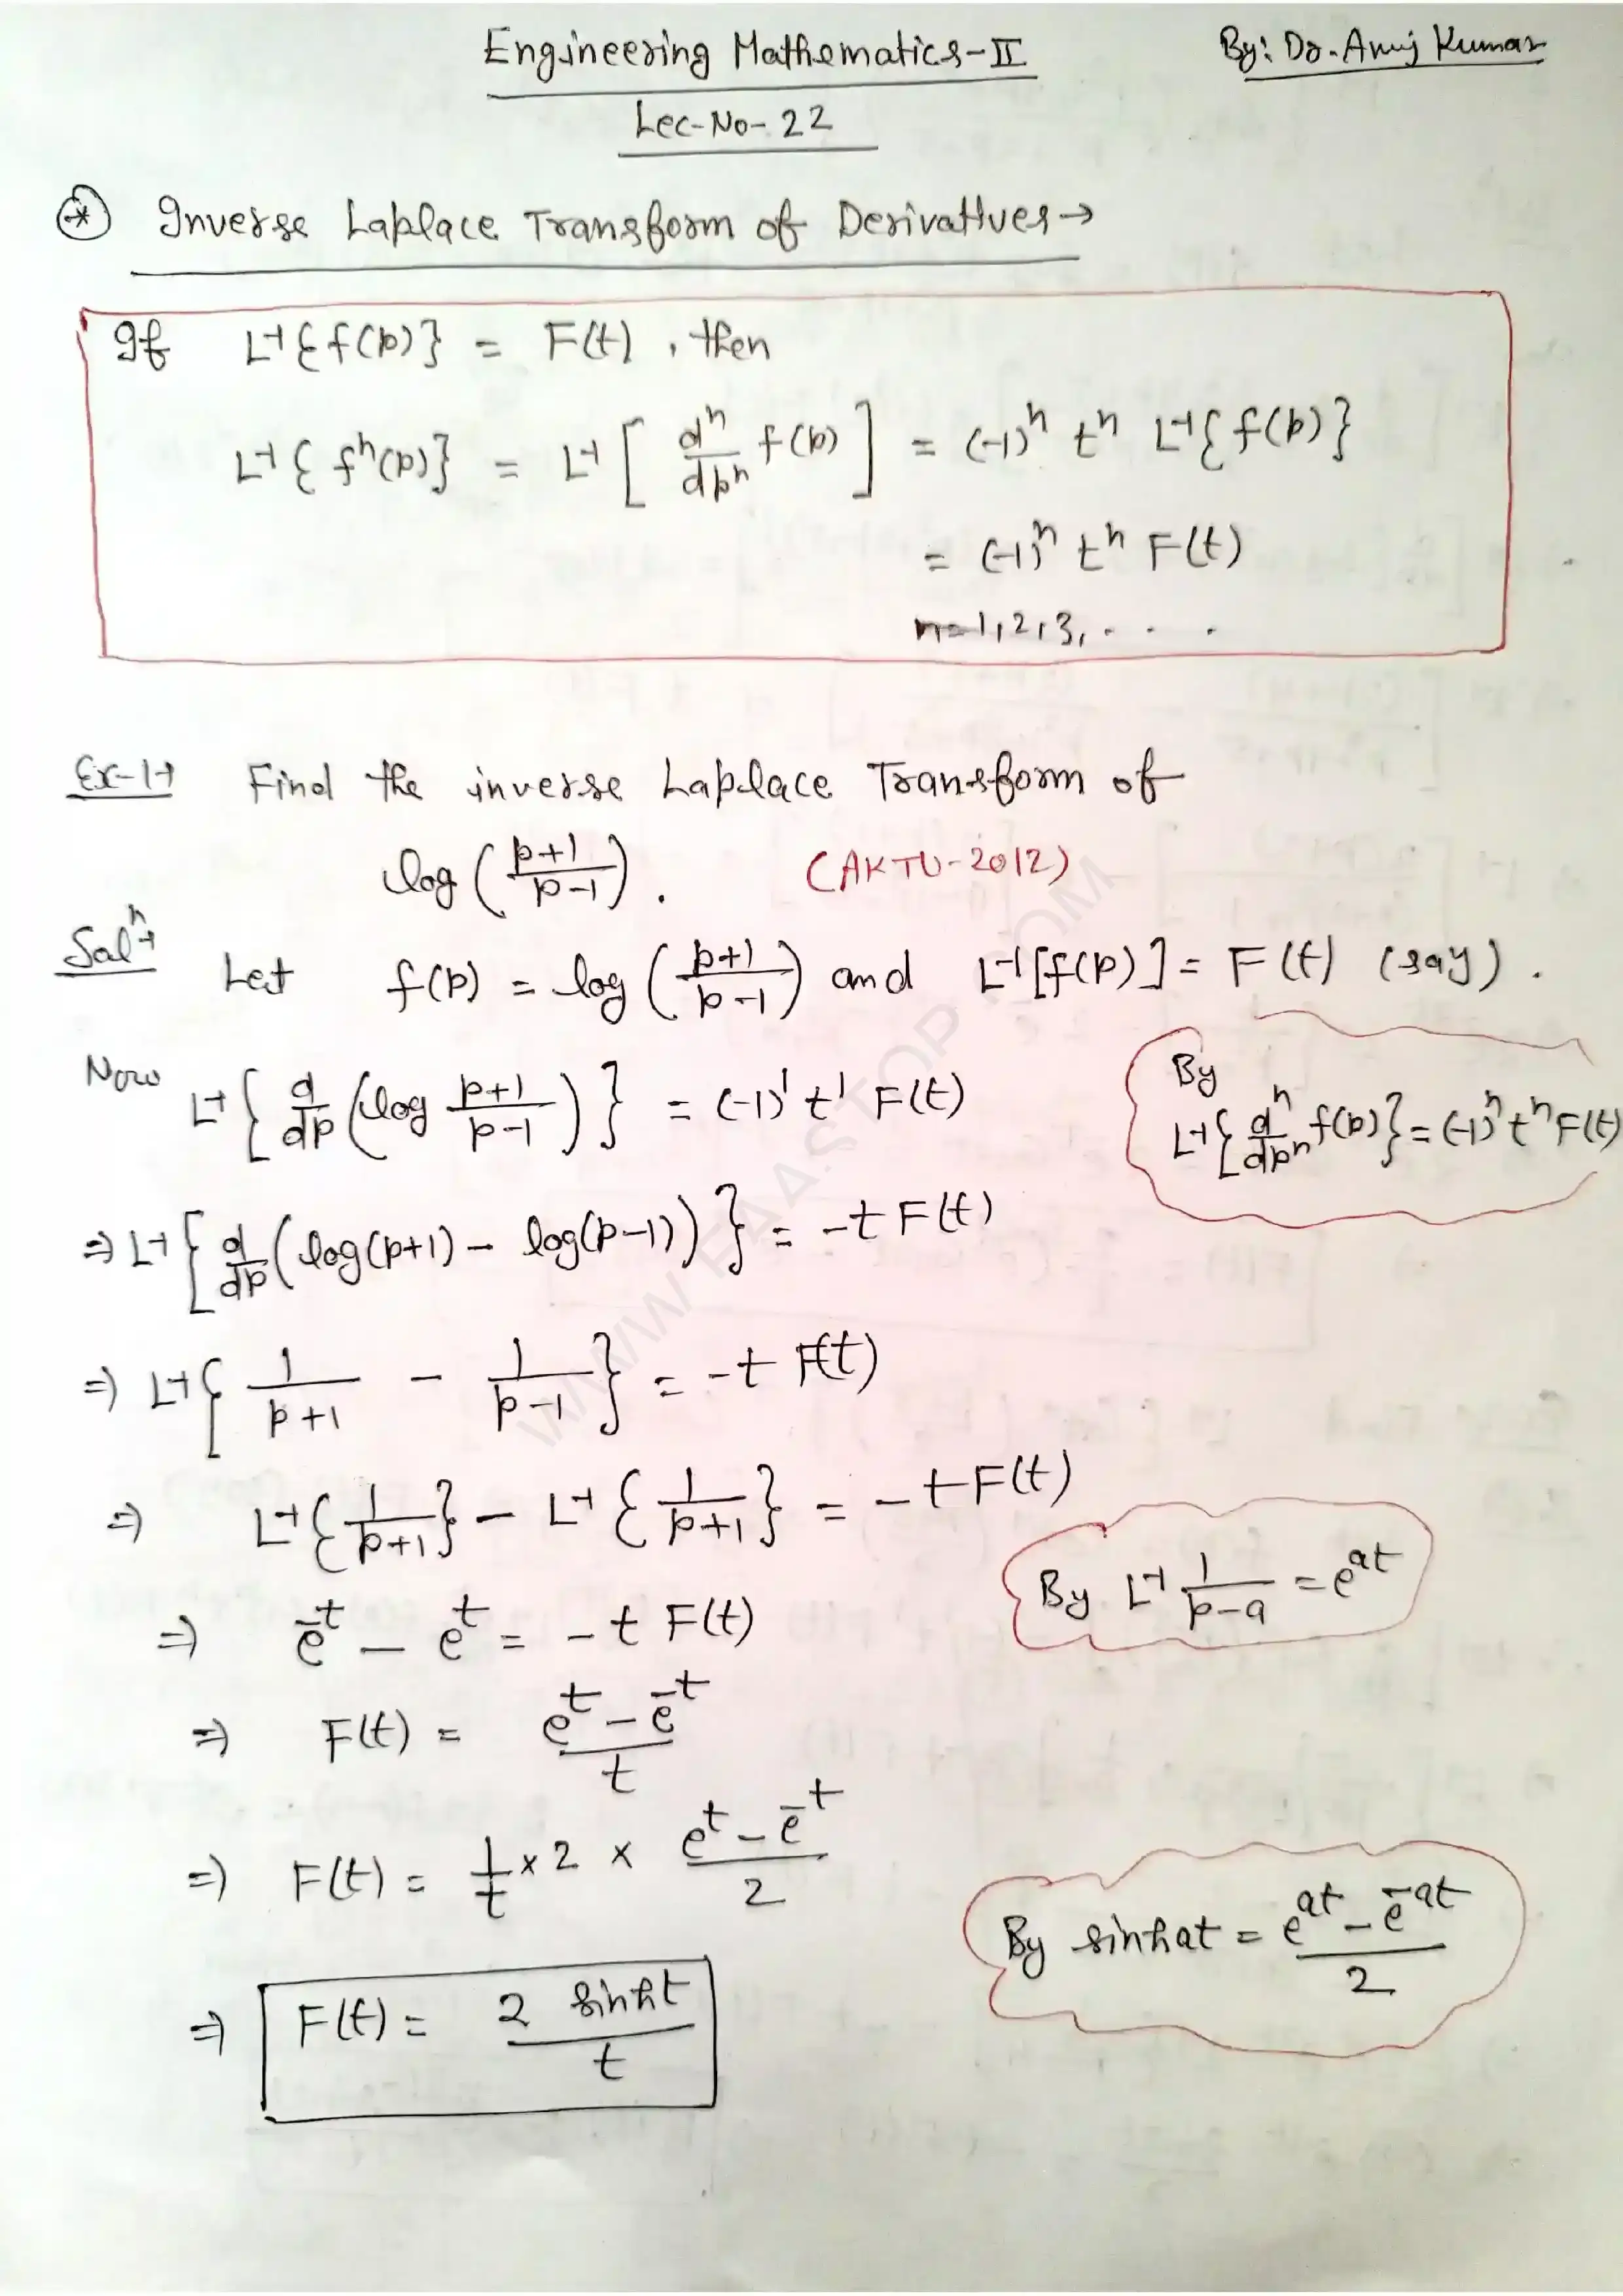 Engineering Mathematics-II
By: Dr. Anuj Kumar
Lec-No-22
* Inverse Laplace Transform of Derivatives→
If L⁻¹{f(p)} = F(t), then
L⁻¹{fⁿ(p)} = L⁻¹[dⁿ/dpⁿ f(p)] = (-1)ⁿ tⁿ L⁻¹{f(p)}
= (-1)ⁿ tⁿ F(t)
n=1,2,3, . . .
Ex-1→ Find the inverse Laplace Transform of
log((p+1)/(p-1)). (AKTU-2012)
Solⁿ→ Let f(p) = log((p+1)/(p-1)) and L⁻¹[f(p)] = F(t) (say).
Now L⁻¹{d/dp(log (p+1)/(p-1))} = (-1)¹ t¹ F(t)
By
L⁻¹{dⁿ/dpⁿ f(p)} = (-1)ⁿ tⁿ F(t)
⇒ L⁻¹{d/dp(log(p+1) - log(p-1))} = -t F(t)
⇒ L⁻¹{1/(p+1) - 1/(p-1)} = -t F(t)
⇒ L⁻¹{1/(p+1)} - L⁻¹{1/(p+1)} = -t F(t)
By L⁻¹ 1/(p-a) = e^at
⇒ e^-t - e^t = -t F(t)
⇒ F(t) = (e^t - e^-t)/t
⇒ F(t) = 1/t × 2 × (e^t - e^-t)/2
By sinhat = (e^at - e^-at)/2
⇒ F(t) = 2 sinht/t
WWW.FAASTOP.COM